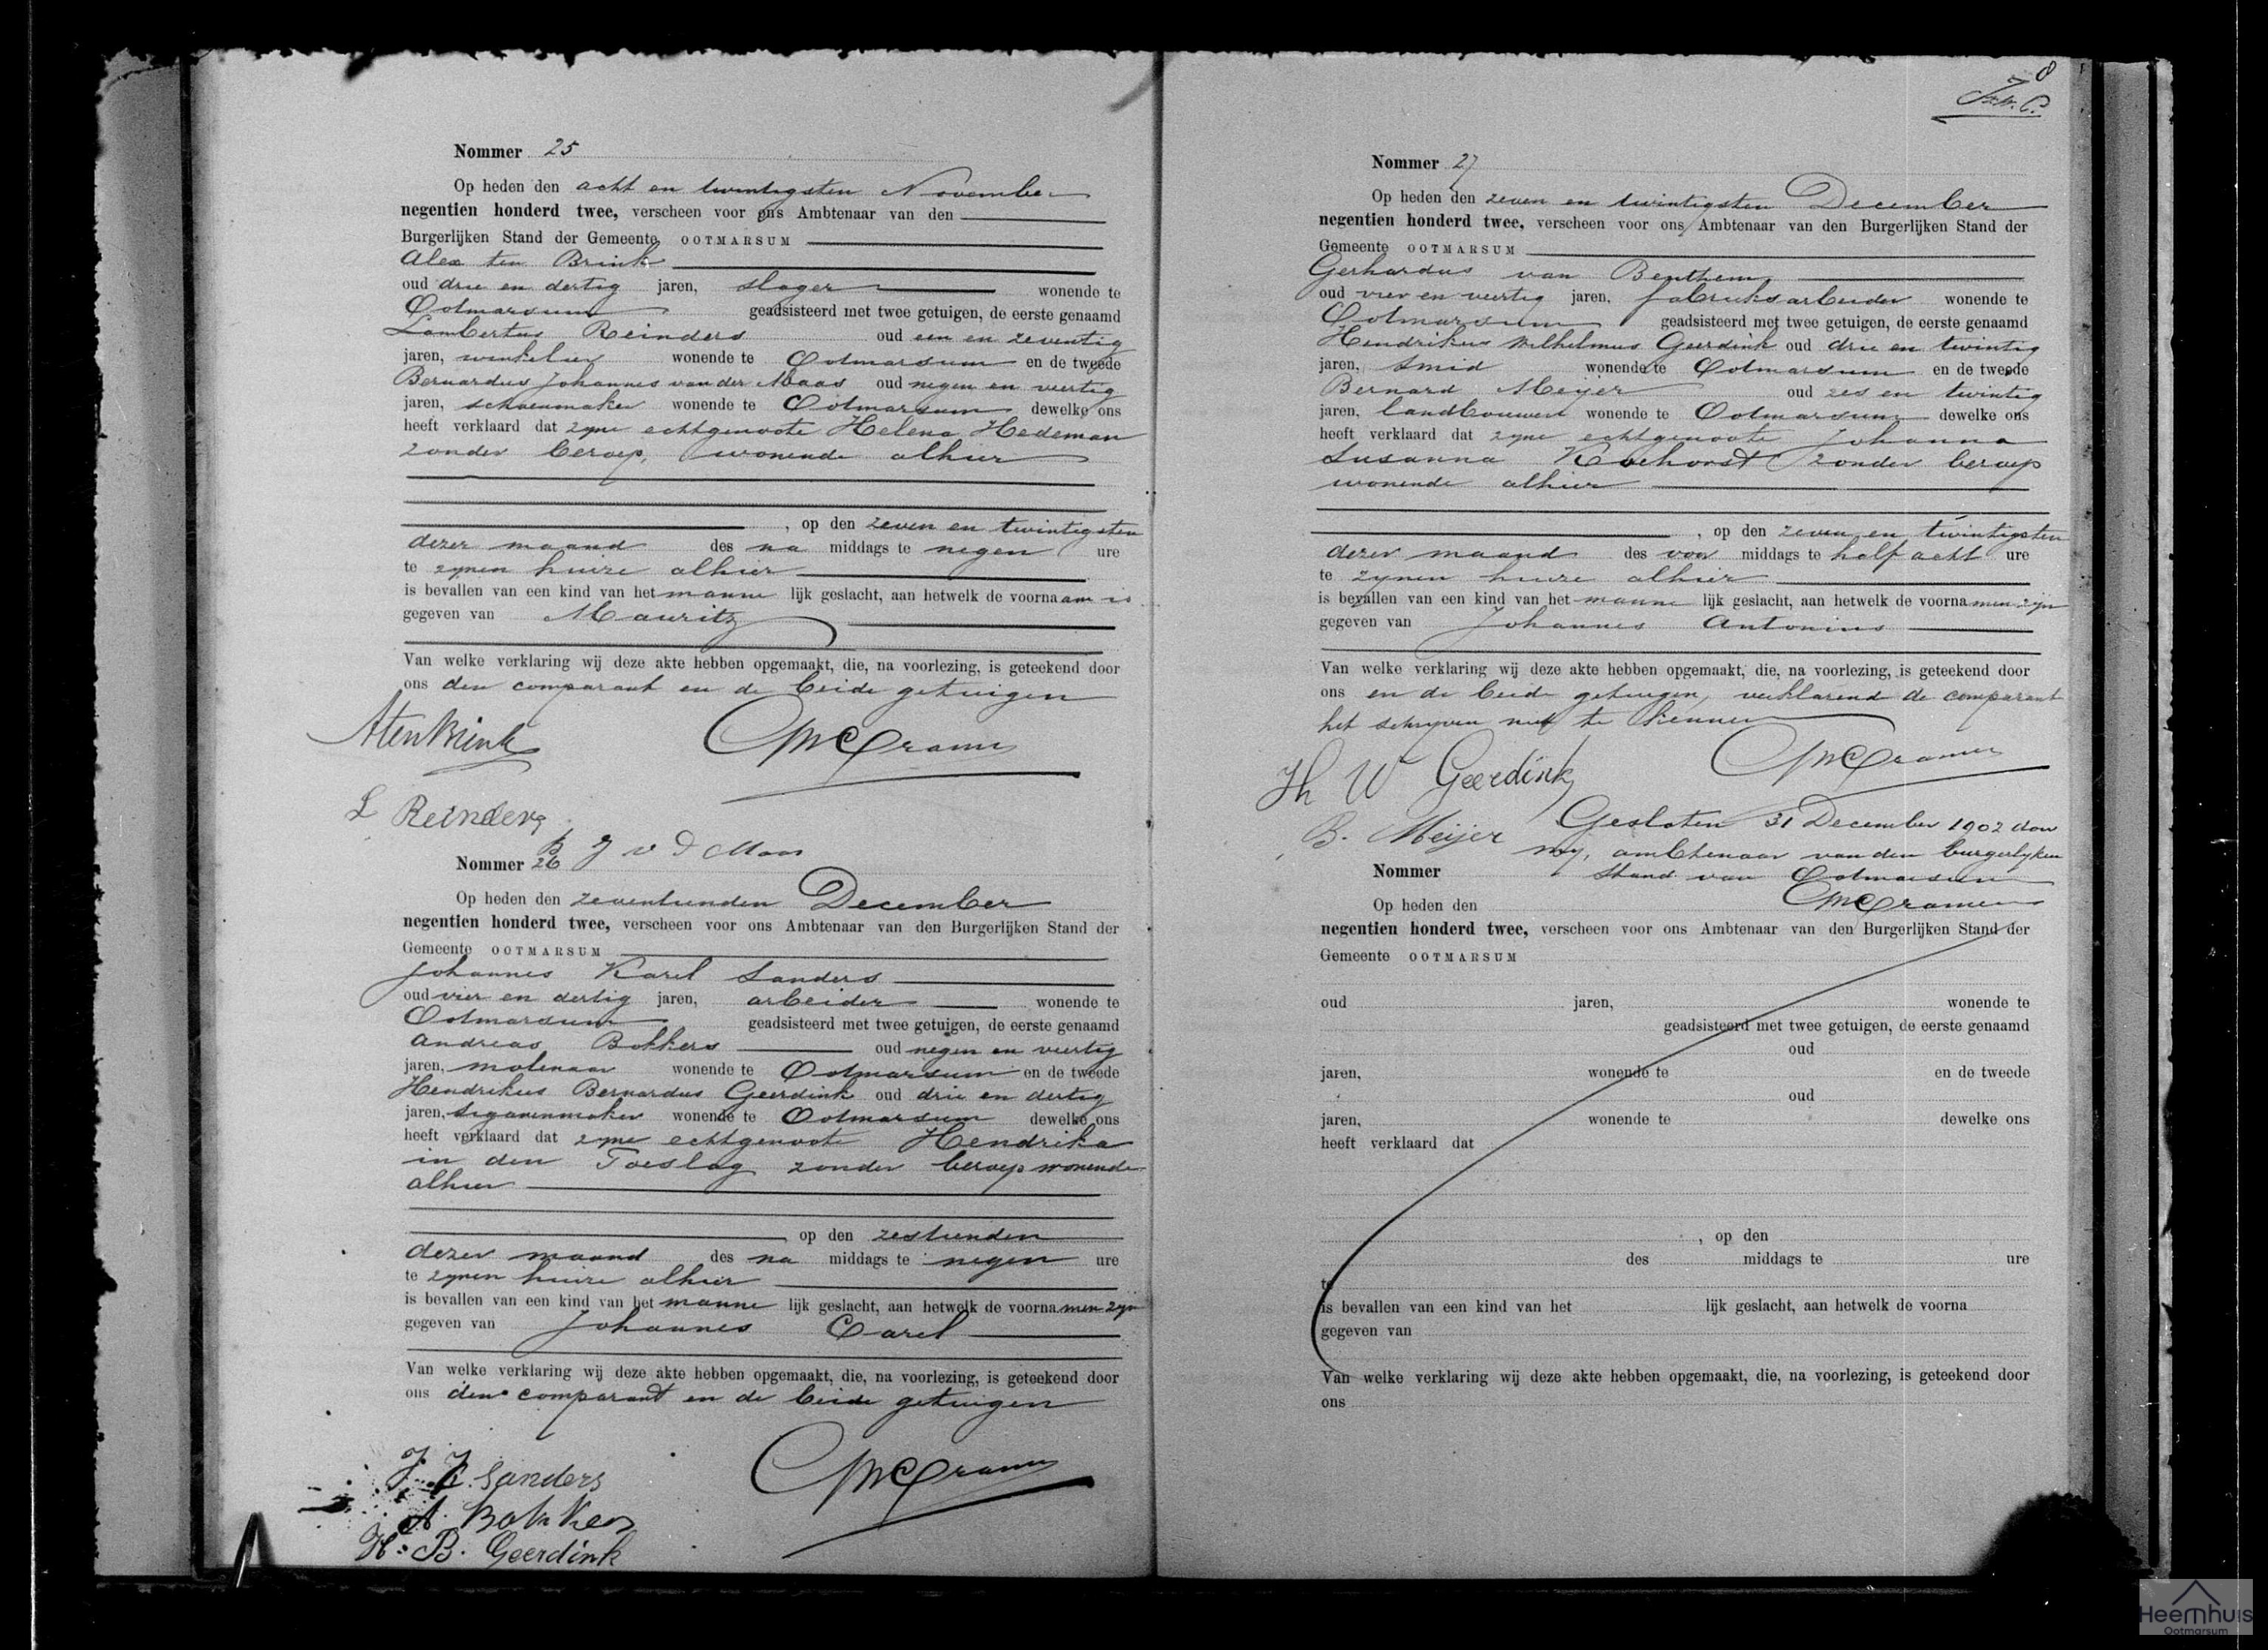 Nommer 25
Op heden den acht en twintigsten November
negentien honderd twee, verscheen voor ons Ambtenaar van den
Burgerlijken Stand der Gemeente OOTMARSUM
Alex ten Brink
oud drie en dertig jaren, slager wonende te
Ootmarsum geadsisteerd met twee getuigen, de eerste genaamd
Lambertus Reinders oud een en zeventig
jaren, winkelier wonende te Ootmarsum en de tweede
Bernardus Johannes van der Maas oud negen en veertig
jaren, schoenmaker wonende te Ootmarsum dewelke ons
heeft verklaard dat zyne echtgenoote Helena Hedeman
zonder beroep, wonende alhier
, op den zeven en twintigsten
dezer maand des na middags te negen ure
te zynen huize alhier
is bevallen van een kind van het manne lijk geslacht, aan hetwelk de voornaam is
gegeven van Mauritz
Van welke verklaring wij deze akte hebben opgemaakt, die, na voorlezing, is geteekend door
ons den comparant en de beide getuigen
AtenBrink
Cramer
L Reinders
B J v d Maas
Nommer 26
Op heden den zeventienden December
negentien honderd twee, verscheen voor ons Ambtenaar van den Burgerlijken Stand der
Gemeente OOTMARSUM
Johannes Karel Sanders
oud vier en dertig jaren, arbeider wonende te
Ootmarsum geadsisteerd met twee getuigen, de eerste genaamd
Andreas Bokkers oud negen en veertig
jaren, molenaar wonende te Ootmarsum en de tweede
Hendrikus Bernardus Geerdink oud drie en dertig
jaren, sigarenmaker wonende te Ootmarsum dewelke ons
heeft verklaard dat zyne echtgenoote Hendrika
in den Toeslag zonder beroep wonende
alhier
op den zestienden
dezer maand des na middags te negen ure
te zynen huize alhier
is bevallen van een kind van het manne lijk geslacht, aan hetwelk de voornamen zyn
gegeven van Johannes Carel
Van welke verklaring wij deze akte hebben opgemaakt, die, na voorlezing, is geteekend door
ons den comparant en de beide getuigen
J. K. Sanders
Cramer
A. Bokkers
H. B. Geerdink
8
Nommer 27
Op heden den zeven en twintigsten December
negentien honderd twee, verscheen voor ons Ambtenaar van den Burgerlijken Stand der
Gemeente OOTMARSUM
Gerhardus van Benthem
oud vier en veertig jaren, fabrieksarbeider wonende te
Ootmarsum geadsisteerd met twee getuigen, de eerste genaamd
Hendrikus Wilhelmus Geerdink oud drie en twintig
jaren, smid wonende te Ootmarsum en de tweede
Bernard Meijer oud zes en twintig
jaren, landbouwer wonende te Ootmarsum dewelke ons
heeft verklaard dat zyne echtgenoote Johanna
Susanna Koehorst zonder beroep
wonende alhier
, op den zeven en twintigsten
dezer maand des voor middags te half acht ure
te zynen huize alhier
is bevallen van een kind van het manne lijk geslacht, aan hetwelk de voornamen zijn
gegeven van Johannes Antonius
Van welke verklaring wij deze akte hebben opgemaakt, die, na voorlezing, is geteekend door
ons en de beide getuigen, verklarend de comparant
het schryven niet te kennen
Cramer
Hh W Geerdink
B. Meijer
Gesloten 31 December 1902 door
my, ambtenaar van den burgerlyken
Stand van Ootmarsum
Cramer
Nommer
Op heden den
negentien honderd twee, verscheen voor ons Ambtenaar van den Burgerlijken Stand der
Gemeente OOTMARSUM
oud jaren, wonende te
geadsisteerd met twee getuigen, de eerste genaamd
oud
jaren, wonende te en de tweede
oud
jaren, wonende te dewelke ons
heeft verklaard dat
, op den
des middags te ure
te
is bevallen van een kind van het lijk geslacht, aan hetwelk de voorna
gegeven van
Van welke verklaring wij deze akte hebben opgemaakt, die, na voorlezing, is geteekend door
ons
Heemhuis
Ootmarsum